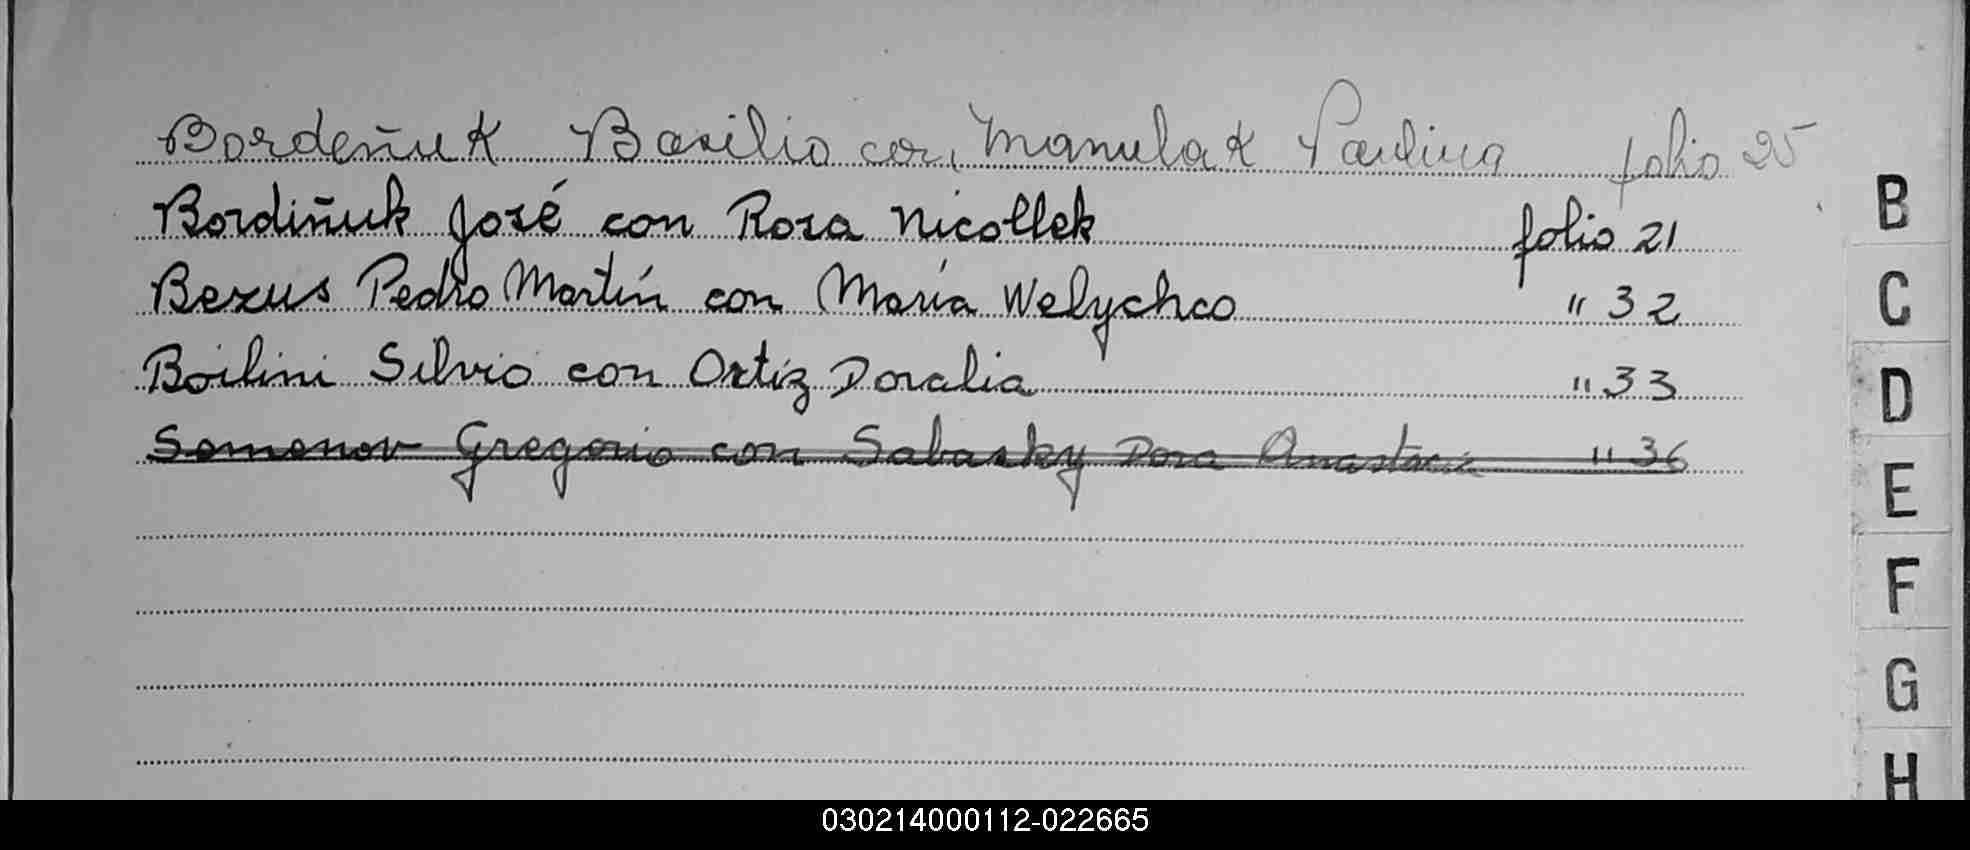 Bordeñuk Basilio con Manulak Paulina folio 25
Bordiñuk José con Rosa Nicollek folio 21
Bezus Pedro Martín con María Welychco " 32
Boilini Silvio con Ortiz Doralia " 33
Semenov Gregorio con Sabasky Dora Anastacia " 36
B
C
D
E
F
G
H
030214000112-022665